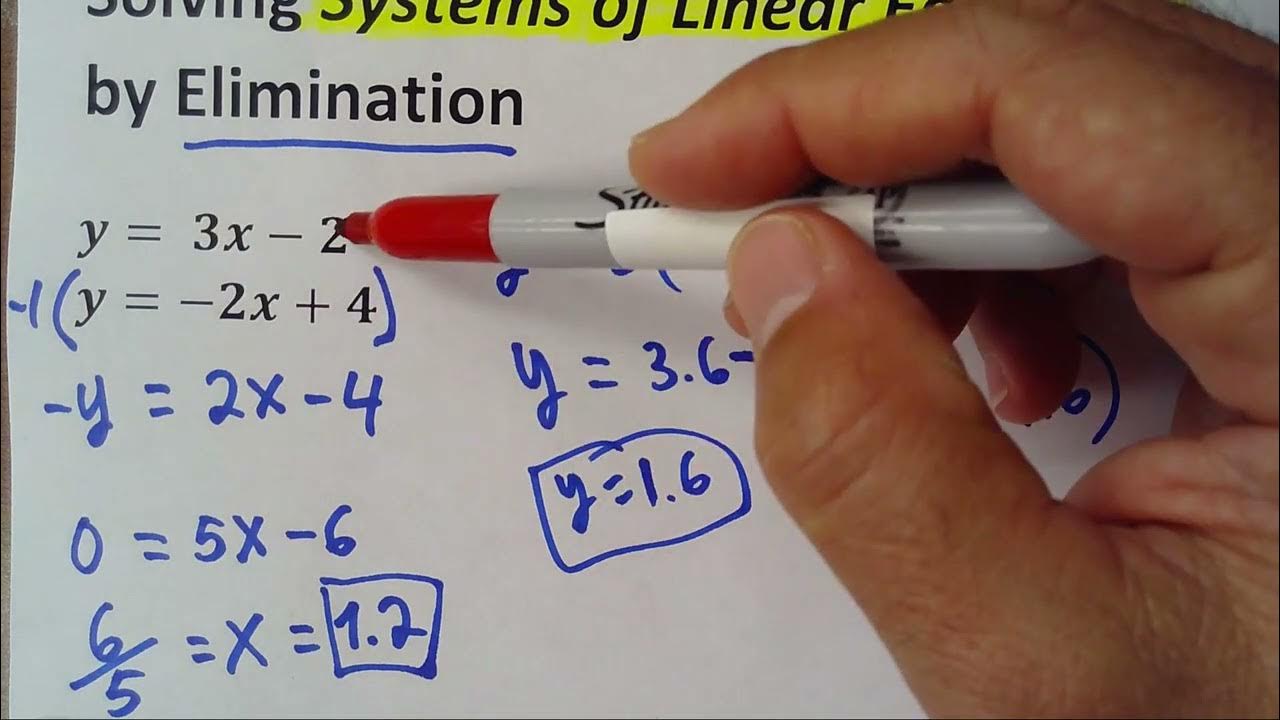 Solving Systems of Linear
by Elimination
y = 3x − 2
-1(y = −2x + 4)
-y = 2x - 4
0 = 5x - 6
6/5 = x = 1.2
y = 3.6-
y = 1.6